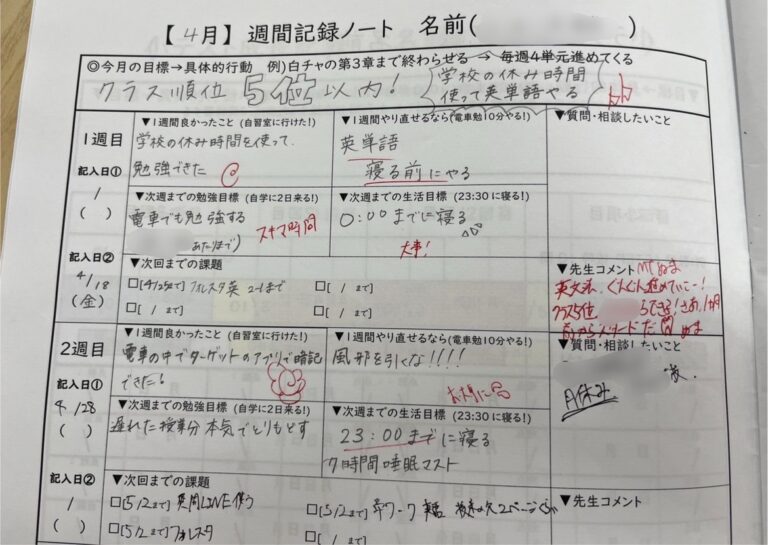 【4月】週間記録ノート 名前(
◎今月の目標→具体的行動 例)白チャの第3章まで終わらせる→毎週4単元進めてくる
クラス順位 5位以内!
学校の休み時間
使って英単語やる
1週目
記入日①
/
( )
▼1週間良かったこと (自習室に行けた!)
学校の休み時間を使って、
勉強できた
▼1週間やり直せるなら(電車勉10分やる!)
英単語
寝る前にやる
▼質問・相談したいこと
▼次週までの勉強目標 (自学に2日来る!)
電車でも勉強する
あたりまで)
スキマ時間
▼次週までの生活目標 (23:30に寝る!)
0:00までに寝る
大事!
記入日②
4/18
(金)
▼次回までの課題
□[4/25まで] フォレスタ英 2-1まで
□[ / まで]
□[ / まで]
□[ / まで]
▼先生コメント
英文法、ぐんぐん進めていこー!
クラス5位
2週目
記入日①
4/28
( )
▼1週間良かったこと (自習室に行けた!)
電車の中でターゲットのアプリで暗記
できた!
▼1週間やり直せるなら(電車勉10分やる!)
風邪を引くな!!!!
お大事に
▼質問・相談したいこと
月休み
▼次週までの勉強目標 (自学に2日来る!)
遅れた授業分本気でとりもどす
▼次週までの生活目標 (23:30に寝る!)
23:00までに寝る
7時間睡眠マスト
記入日②
/
( )
▼次回までの課題
□[5/2まで] 質問LINE使う
□[5/2まで] フォレスタ
□[5/2まで]
□[ / まで]
▼先生コメント